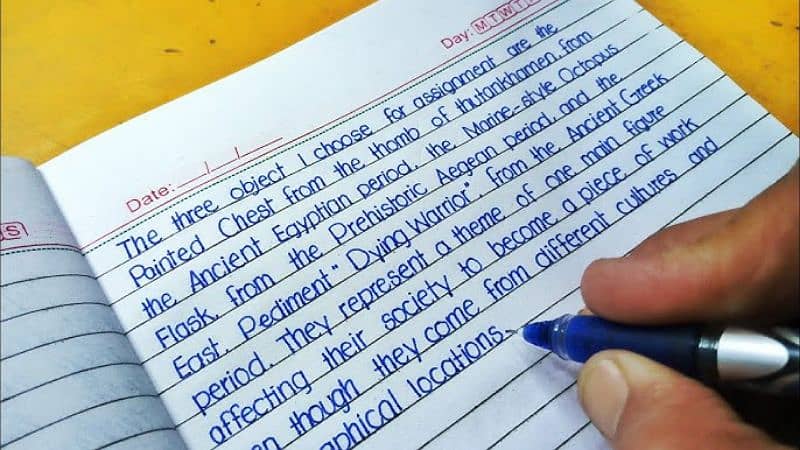 Day: M T W T
Date: __/__/__
The three object I choose for assignment are the
Painted Chest from the thomb of thutankhamen from
the Ancient Egyptian period, the Marine-style Octopus
Flask, from the Prehistoric Aegean period, and the
East, Pediment "Dying Warrior" from the Ancient Greek
period. They represent a theme of one main figure
affecting their society to become a piece of work
though they come from different cultures and
locations.